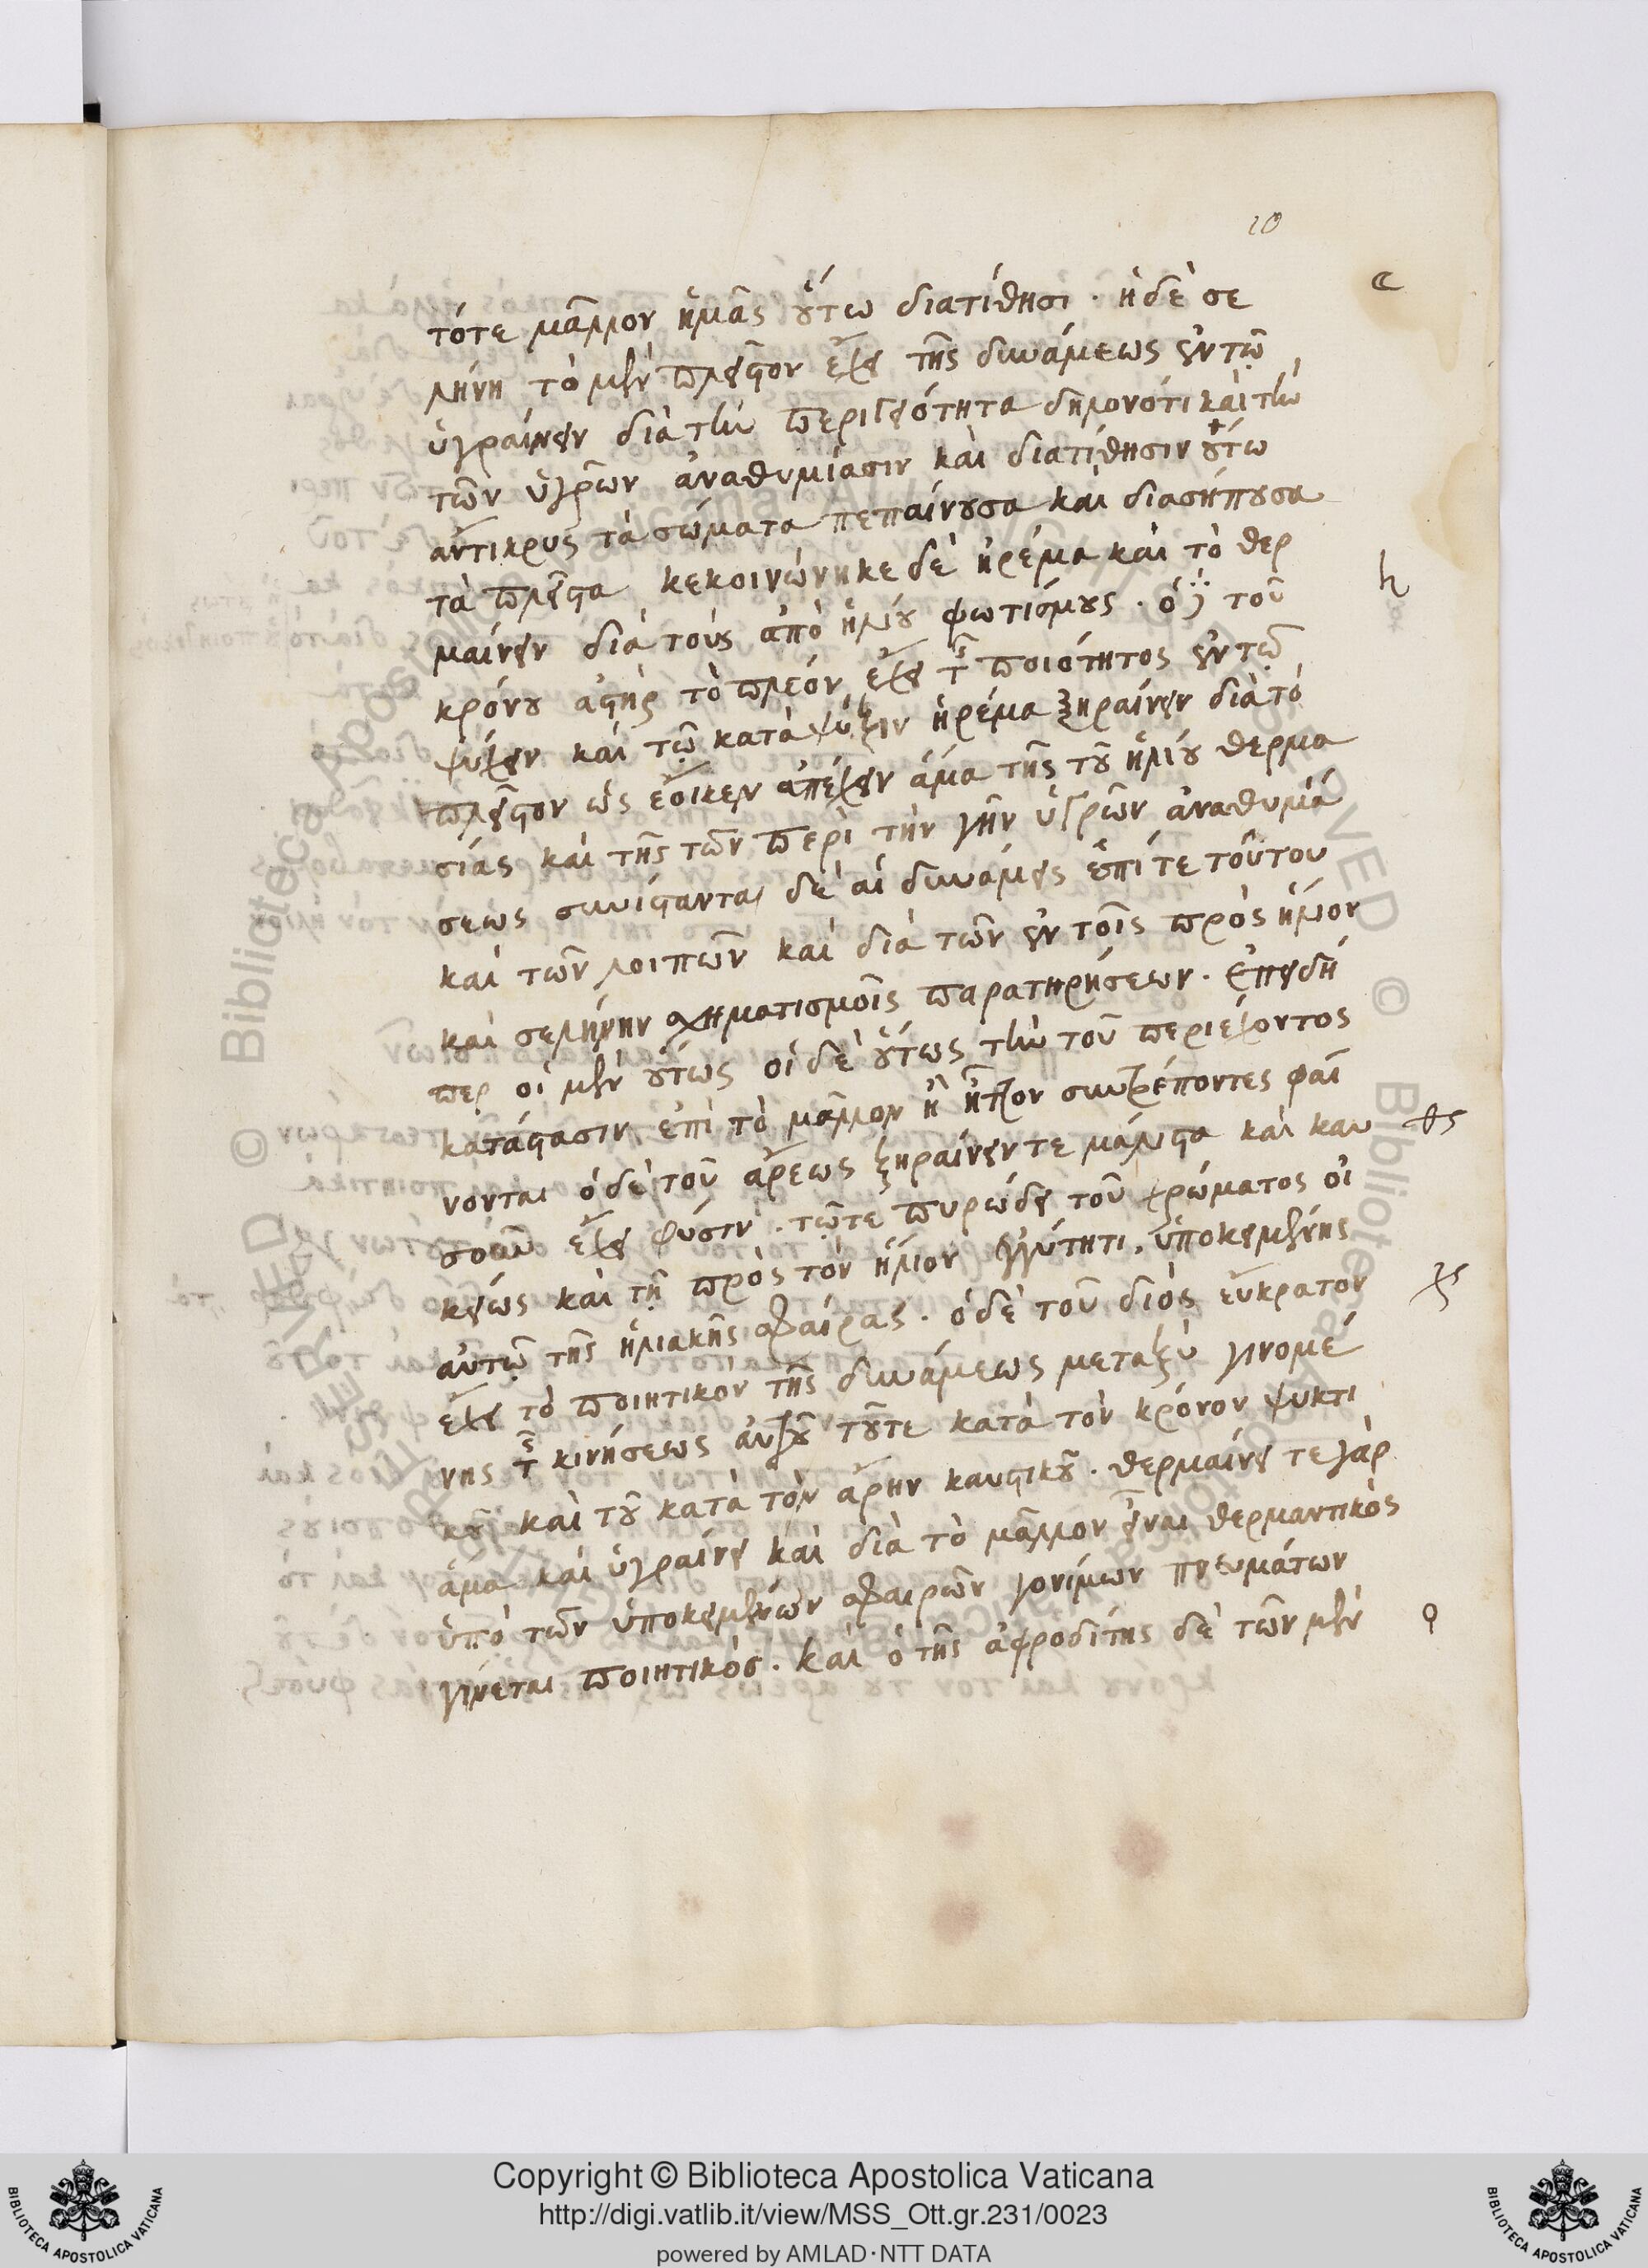 10
τότε μᾶλλον ἡμᾶς οὕτω διατίθησι · ἡ δὲ σε
λήνη τὸ μὲν πλεῖστον ἔχει τῆς δυνάμεως ἐν τῶ
ὑγραίνειν διὰ τὴν περιγειότητα δηλονότι καὶ τὴν
τῶν ὑγρῶν ἀναθυμίασιν καὶ διατίθησιν οὕτω
ἄντικρυς τὰ σώματα πεπαίνουσα καὶ διασήπουσα
τὰ πλεῖστα κεκοινώνηκε δὲ ἠρέμα καὶ τὸ θερ
μαίνειν διὰ τοὺς ἀπὸ ἡλίου φωτισμους · ὁ δὲ τοῦ
κρόνου ἀστὴρ τὸ πλεόν ἔχει τῆς ποιότητος ἐν τῶ
ψύχειν καὶ τῶ κατὰ ψύξιν ἠρέμα ξηραίνειν διὰ τὸ
πλεῖστον ὡς ἔοικεν ἀπέχειν ἅμα τῆς τοῦ ἡλίου θερμα
σίας καὶ τῆς τῶν περὶ τὴν γῆν ὑγρῶν ἀναθυμιά
σεως συνίστανται δὲ αἱ δυνάμεις ἐπί τε τοῦτου
καὶ τῶν λοιπῶν καὶ διὰ τῶν ἐν τοῖς πρὸς ἥλιον
καὶ σελήνην σχηματισμοῖς παρατηρήσεων · ἐπειδή
περ οἱ μὲν οὕτως οἱ δὲ οὕτως τὴν τοῦ περιέχοντος
κατάστασιν ἐπὶ τὸ μᾶλλον ἢ ἧττον συντρέποντες φαί
νονται ὁ δὲ τοῦ ἄρεως ξηραίνειν τε μάλιστα καὶ καυ
σοῦν ἔχει φύσιν · τῶ τε πυρώδει τοῦ χρώματος οἰ
κείως καὶ τῇ πρὸς τὸν ἥλιον ἐγγύτητι, ὑποκειμένης
αὐτῶ τῆς ἡλιακῆς σφαίρας · ὁ δὲ τοῦ διὸς εὔκρατον
ἔχει τὸ ποιητικὸν τῆς δυνάμεως μεταξὺ γινομέ
νης τῆς κινήσεως αὐτοῦ τοῦ τε κατὰ τὸν κρόνον ψυκτι
κοῦ καὶ τοῦ κατὰ τὸν ἄρην καυστικοῦ · θερμαίνει τε γὰρ
ἅμα καὶ ὑγραίνει καὶ διὰ τὸ μᾶλλον εἶναι θερμαντικὸς
ὑπὸ τῶν ὑποκειμένων σφαιρῶν γονίμων πνευμάτων
γίνεται ποιητικός · καὶ ὁ τῆς ἀφροδίτης δὲ τῶν μὲν
☾
♄
♂
♃
♀
Copyright © Biblioteca Apostolica Vaticana
http://digi.vatlib.it/view/MSS_Ott.gr.231/0023
powered by AMLAD·NTT DATA
BIBLIOTECA APOSTOLICA VATICANA
BIBLIOTECA APOSTOLICA VATICANA